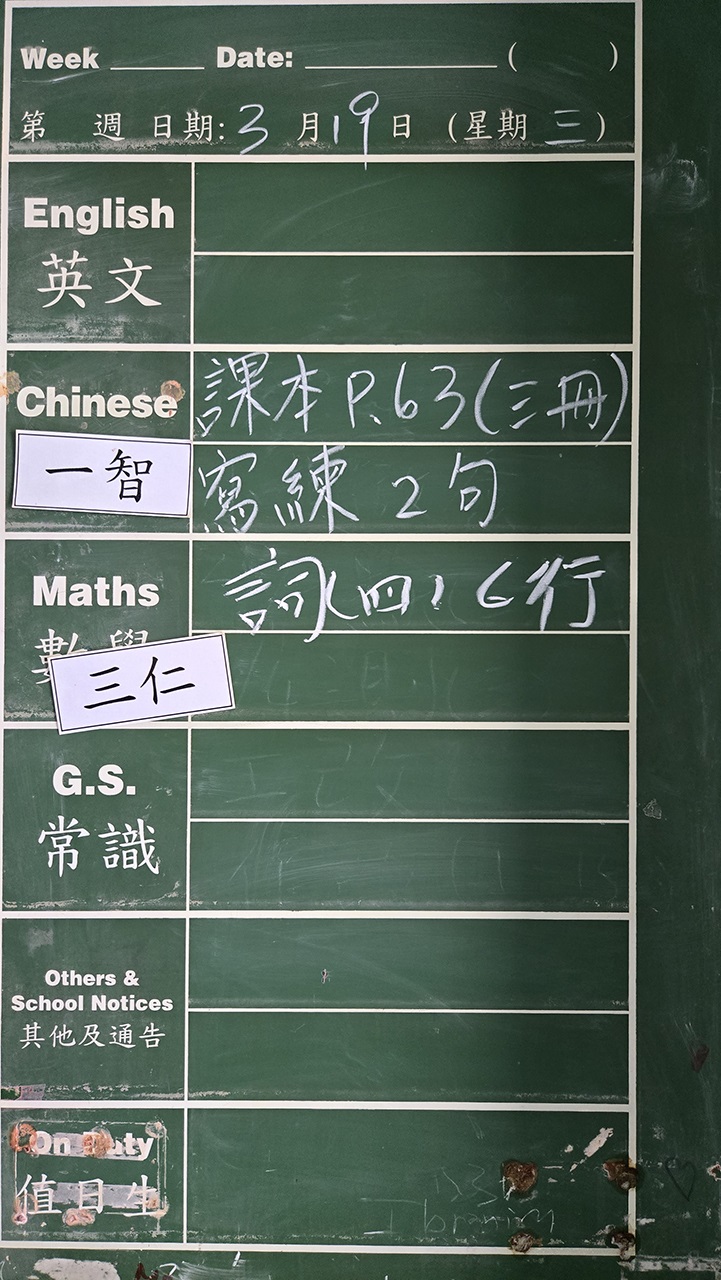 Week ____ Date: ________ ( )
第 週 日期: 3 月 19 日 (星期 三)
English
英文
Chinese
課本 P.63 (三冊)
一智
寫練 2 句
Maths
詞(四) 6行
數學
三仁
G.S.
常識
Others &
School Notices
其他及通告
On Duty
值日生